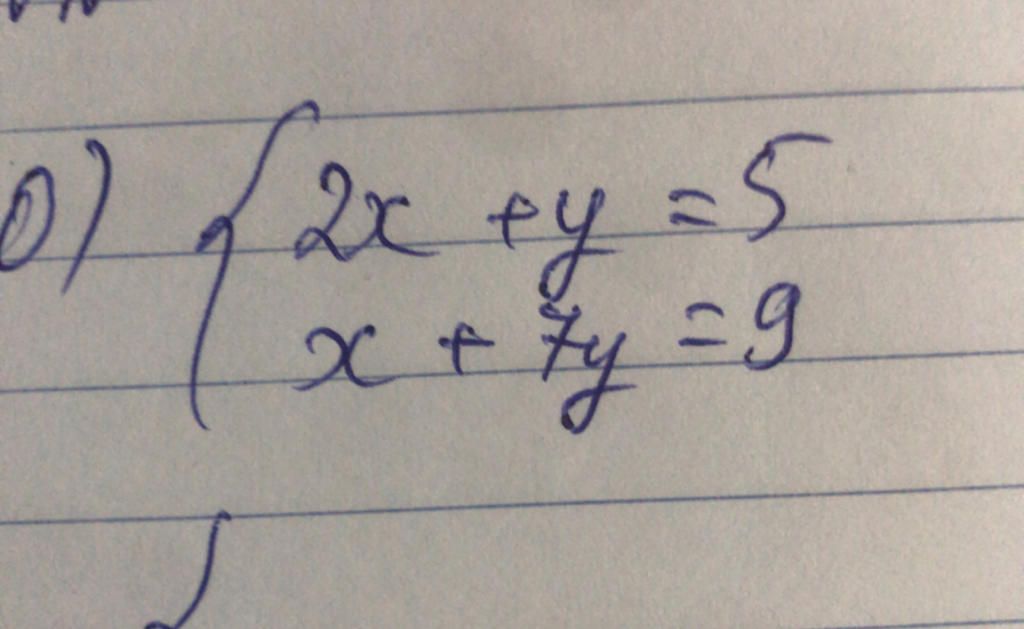 0) { 2x + y = 5
x + 7y = 9